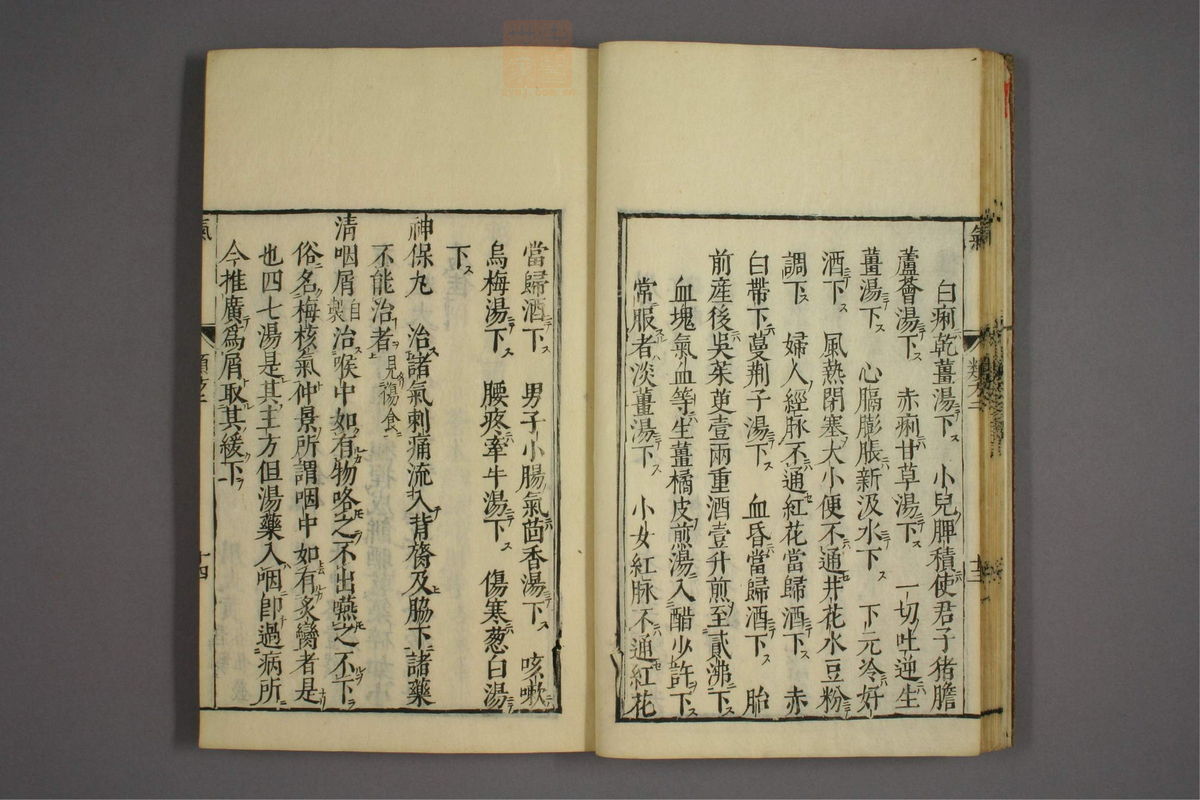 白痢乾薑湯下　小兒脾積使君子猪膽
蘆薈湯下　赤痢甘草湯下　一切吐逆生
薑湯下　心膈膨脹新汲水下　下元冷好
酒下　風熱閉塞大小便不通井花水豆粉
調下　婦人經脉不通紅花當歸酒下　赤
白帶下蔓荆子湯下　血昏當歸酒下　胎
前產後吳茱萸壹兩重酒壹升煎至貳沸下
血塊氣血等生薑橘皮煎湯入醋少許下
常服者淡薑湯下　小女紅脉不通紅花
當歸酒下　男子小腸氣茴香湯下　咳嗽
烏梅湯下　腰疼牽牛湯下　傷寒葱白湯
下
神保丸　治諸氣刺痛流入背膂及脇下諸藥
不能治者見傷食
清咽屑自製治喉中如有物咯之不出嚥之不下
俗名梅核氣仲景所謂咽中如有炙臠者是
也四七湯是其主方但湯藥入咽卽過病所
今推廣爲屑取其緩下
十四